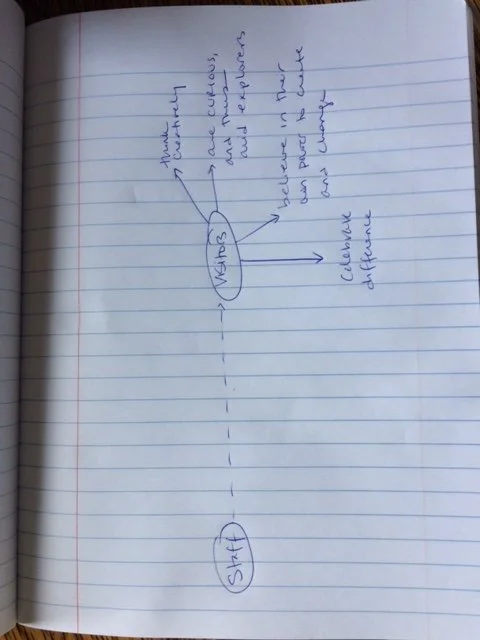 Staff
Visitors
think
creatively
are curious,
and thus
avid explorers
believe in their
own power to create
and change
celebrate
difference